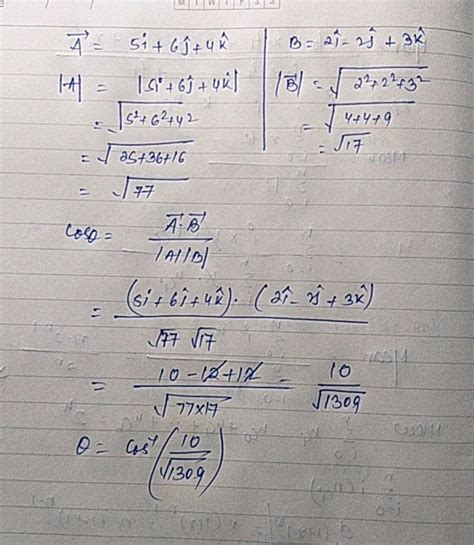 A⃗ = 5î + 6ĵ + 4k̂
|A| = |5î + 6ĵ + 4k̂|
= √5²+6²+4²
= √25+36+16
= √77
B = 2î - 2ĵ + 3k̂
|B⃗| = √2²+2²+3²
= √4+4+9
= √17
cosθ = A⃗·B⃗ / |A||B|
= (5î + 6ĵ + 4k̂)·(2î - 2ĵ + 3k̂) / √77 √17
= 10 - 12 + 12 / √77×17 = 10 / √1309
θ = cos⁻¹(10 / √1309)